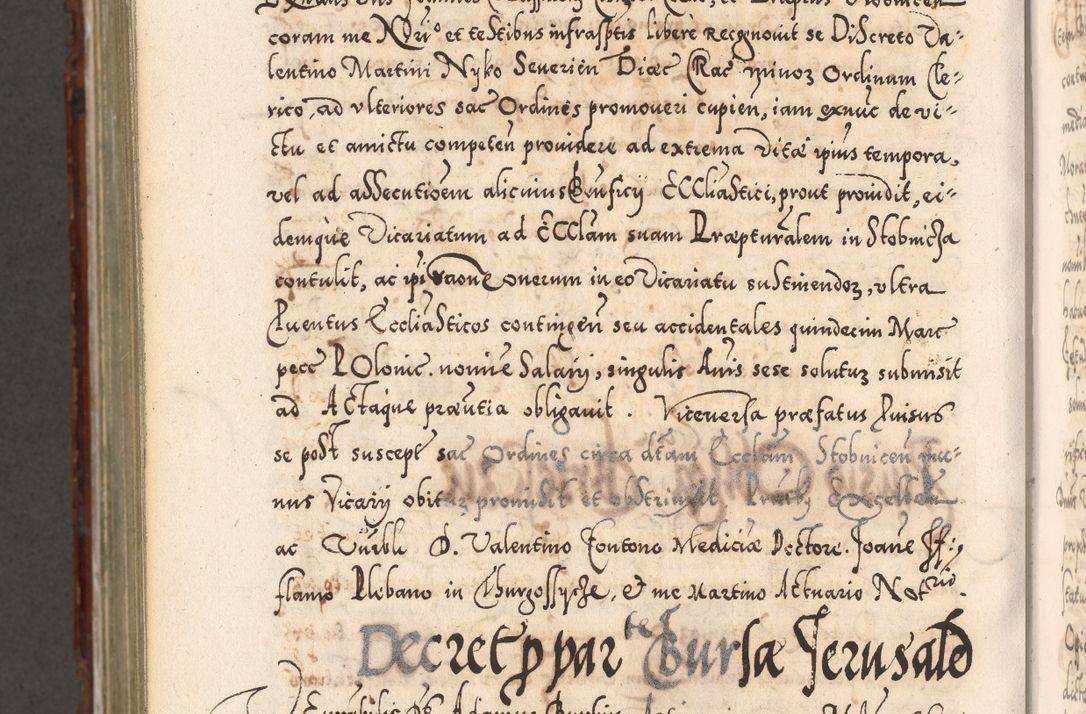 coram me Norio et testibus infrasptis libere Recognovit se Discreto Va-
lentino Martini Nyko Severien Diæc Crac minoz Ordinum Cle-
rico, ad ulteriores sac Ordines promoveri cupien, iam exnuc de vi-
ctu et amictu competen providere ad extrema Vitæ ipius tempora,
vel ad assecutioem alicuius Benficij ECCliastici, prout providit, ei-
demque Vicariatum ad ECClam suam Præpturalem in Stobnicza
contulit, ac ipi raone onerum in eo Vicariatu sustinendoz, ultra
Puentus Ecclïasticos contingen seu accidentales quindecim Marc
pecc POlonic. nomine Salarij, singulis Anis sese soluturz submisit
ad Actaque præntia obligavit. Viceversa præfatus Puisus
se post suscept sac Ordines circa dtam Ecclam Stobnicen mu-
nus Vicarij obiturz promisit et obstrinxit Præntibz Excellen
ac Vnrbli D. Valentino Fontono Medicinæ Doctore. Joane
Plebano in Churgossycze, et me Martino Actuario Notrio.
Decret p par te Bursæ Jerusale